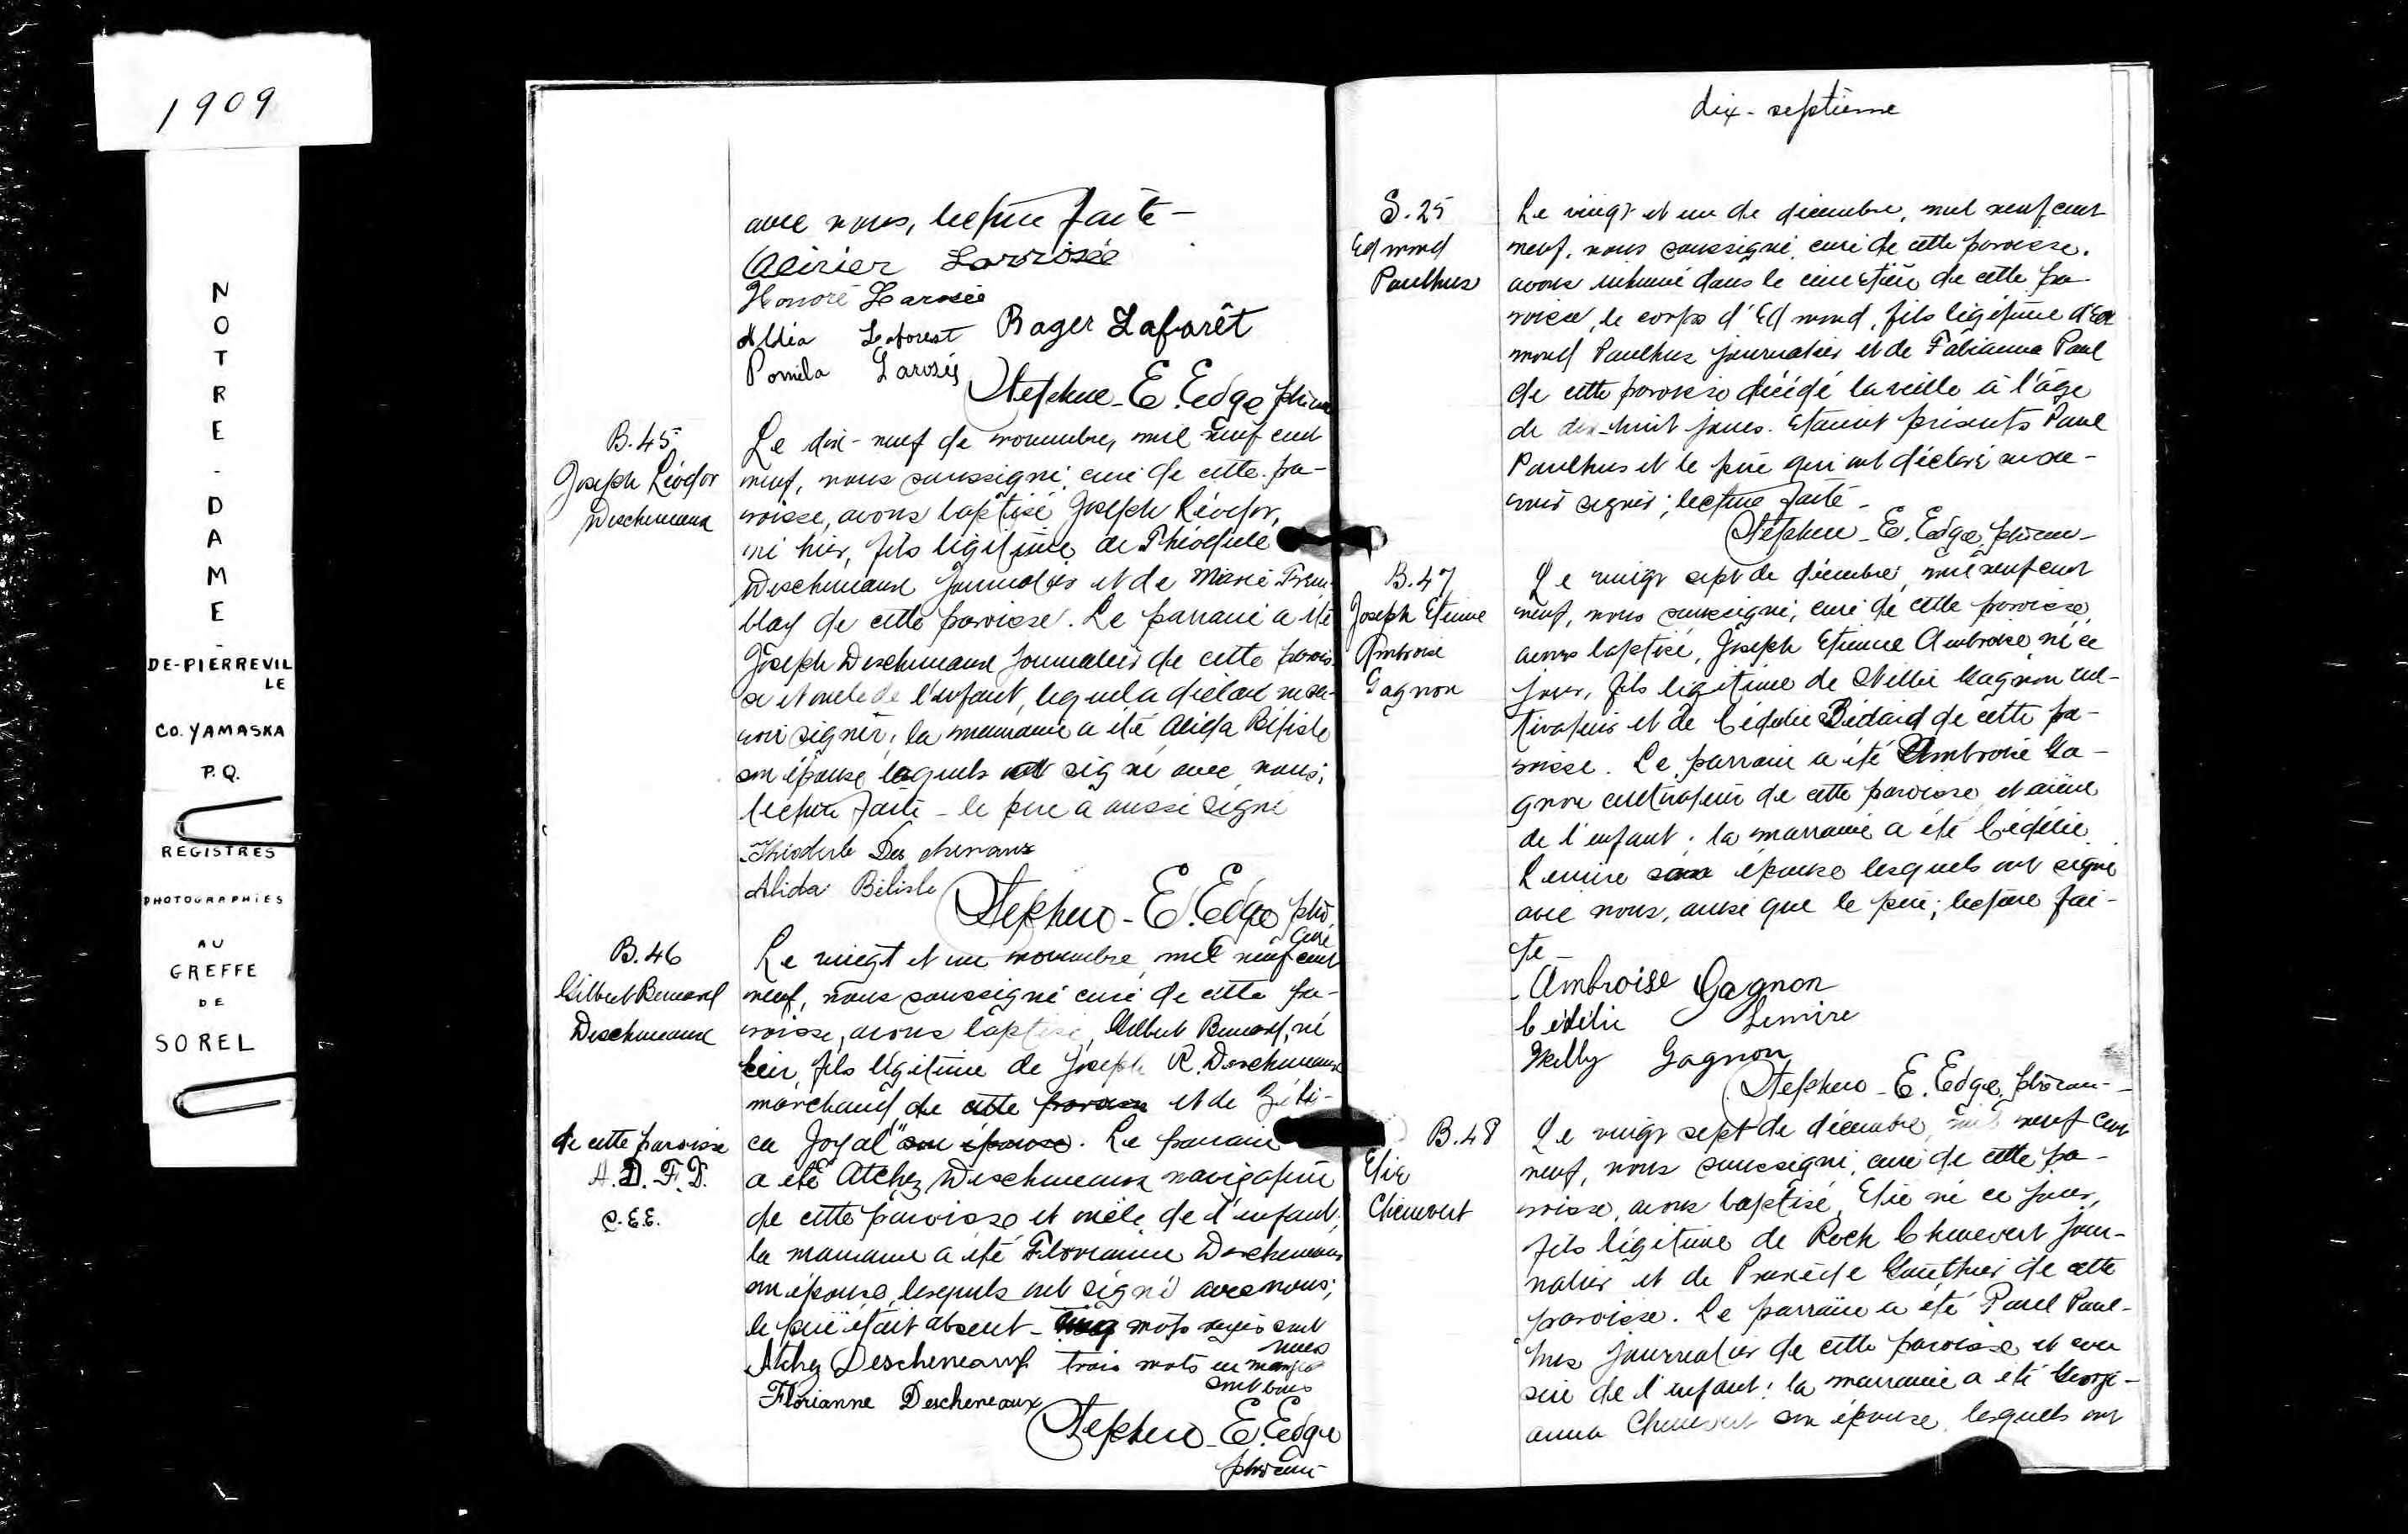 1909
NOTRE-DAME-
DE-PIERREVIL
LE
CO. YAMASKA
P.Q.
REGISTRES
PHOTOGRAPHIES
AU
GREFFE
DE
SOREL
avec nous, lecture faite -
Larrosée
Honoré Larosée
Aldéa Laforest Roger Laforêt
Pomela Larosée
Stephen - E. Edge ptre curé
B. 45
Joseph Léodor
Deschenaux
Le dix-neuf de novembre, mil neuf cent
neuf, nous soussigné, curé de cette pa-
roisse, avons baptisé Joseph Léodor,
né hier, fils légitime de Théodule
Deschenaux journalier et de Marie Trem-
blay de cette paroisse. Le parrain a été
Joseph Deschenaux journalier de cette parois-
se et oncle de l'enfant, lequel a déclaré ne sa-
voir signer, la marraine a été Alida Bélisle
son épouse lesquels ont signé avec nous;
lecture faite - le père a aussi signé
Théodule Des chenaux
Alida Bélisle
Stephen - E. Edge ptre
curé
B. 46
Gilbert Bernard
Deschenaux
Le vingt et un novembre mil neuf cent
neuf, nous soussigné curé de cette pa-
roisse, avons baptisé, Gilbert Bernard, né
hier, fils légitime de Joseph R. Deschenaux
marchand, de cette paroisse et de Zéli-
de cette paroisse
A. D. F. D.
S. E. E.
ca Joyal son épouse. Le parrain
a été Atchez Deschenaux navigateur
de cette paroisse et oncle de l'enfant;
la marraine a été Florianne Deschenaux
son épouse, lesquels ont signé avec nous;
le père était absent - cinq mots rayés sont
nuls
Atchez Descheneaux trois mots en marge
sont bons
Florianne Descheneaux
Stephen - E. Edge
ptre curé
dix-septième
S. 25
Edmond
Paulhus
Le vingt et un de décembre, mil neuf cent
neuf, nous soussigné, curé de cette paroisse,
avons inhumé dans le cimetière de cette pa-
roisse, le corps d'Edmond, fils légitime d'Ed
mond Paulhus journalier et de Fabianna Paul
de cette paroisse décédé la veille à l'âge
de dix-huit jours. Etaient présents Paul
Paulhus et le père qui ont déclaré ne sa-
voir signer; lecture faite -
Stephen - E. Edge, ptre curé -
B. 47
Joseph Etienne
Ambroise
Gagnon
Le vingt sept de décembre, mil neuf cent
neuf, nous soussigné, curé de cette paroisse,
avons baptisé, Joseph Etienne Ambroise né ce
jour, fils légitime de Willie Gagnon cul-
tivateur et de Cédulie Bédard de cette pa-
roisse. Le parrain a été Ambroise Ga-
gnon cultivateur de cette paroisse et aïeul
de l'enfant; la marraine a été Cédélie
Lemire son épouse lesquels ont signé
avec nous, ainsi que le père; lecture fai-
te -
Ambroise Gagnon
Cédélie Lemire
Willy Gagnon
Stephen - E. Edge, ptre curé -
B. 48
Elie
Chenevert
Le vingt sept de décembre, mil neuf cent
neuf, nous soussigné, curé de cette pa-
roisse, avons baptisé, Elie né ce jour,
fils légitime de Roch Chenevert jour-
nalier et de Praxède Gauthier de cette
paroisse. Le parrain a été Paul Paul-
hus journalier de cette paroisse et cou
sin de l'enfant; la marraine a été Georgi-
anna Chenevert son épouse, lesquels ont